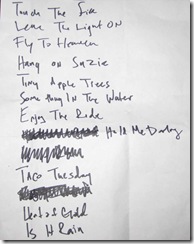 Touch The Fire
Leave The Light ON
Fly To Heaven
Hang on Suzie
Tiny Apple Trees
Something In The Water
Enjoy The Ride
Hold Me Darling
Taco Tuesday
Heart of Gold
Is It Rain